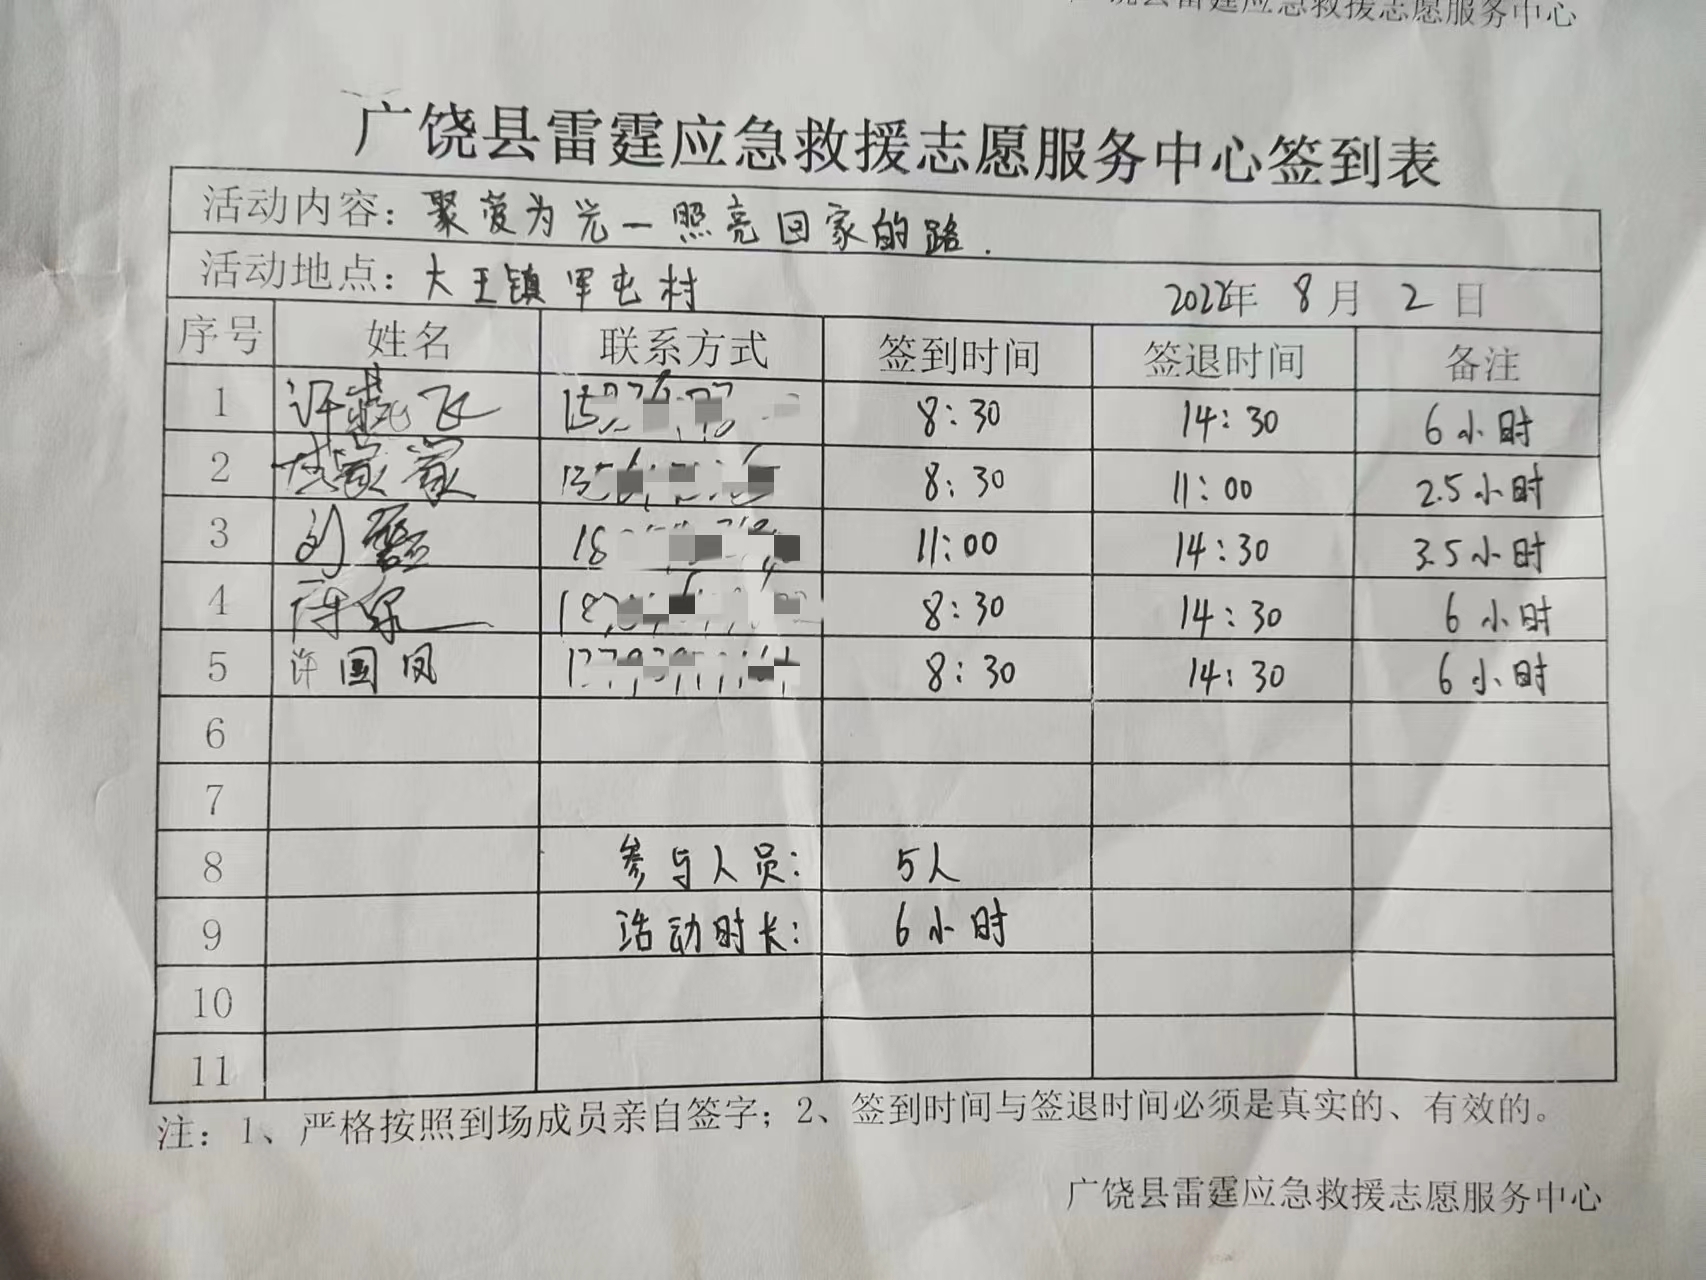 广饶县雷霆应急救援志愿服务中心
广饶县雷霆应急救援志愿服务中心签到表
活动内容：聚萤为光一照亮回家的路.
活动地点：大王镇军屯村 2022年 8月 2日
序号 姓名 联系方式 签到时间 签退时间 备注
1 许 飞 8:30 14:30 6小时
2 8:30 11:00 2.5小时
3 刘 11:00 14:30 3.5小时
4 8:30 14:30 6小时
5 许国凤 8:30 14:30 6小时
6
7
8 参与人员： 5人
9 活动时长： 6小时
10
11
注：1、严格按照到场成员亲自签字；2、签到时间与签退时间必须是真实的、有效的。
广饶县雷霆应急救援志愿服务中心